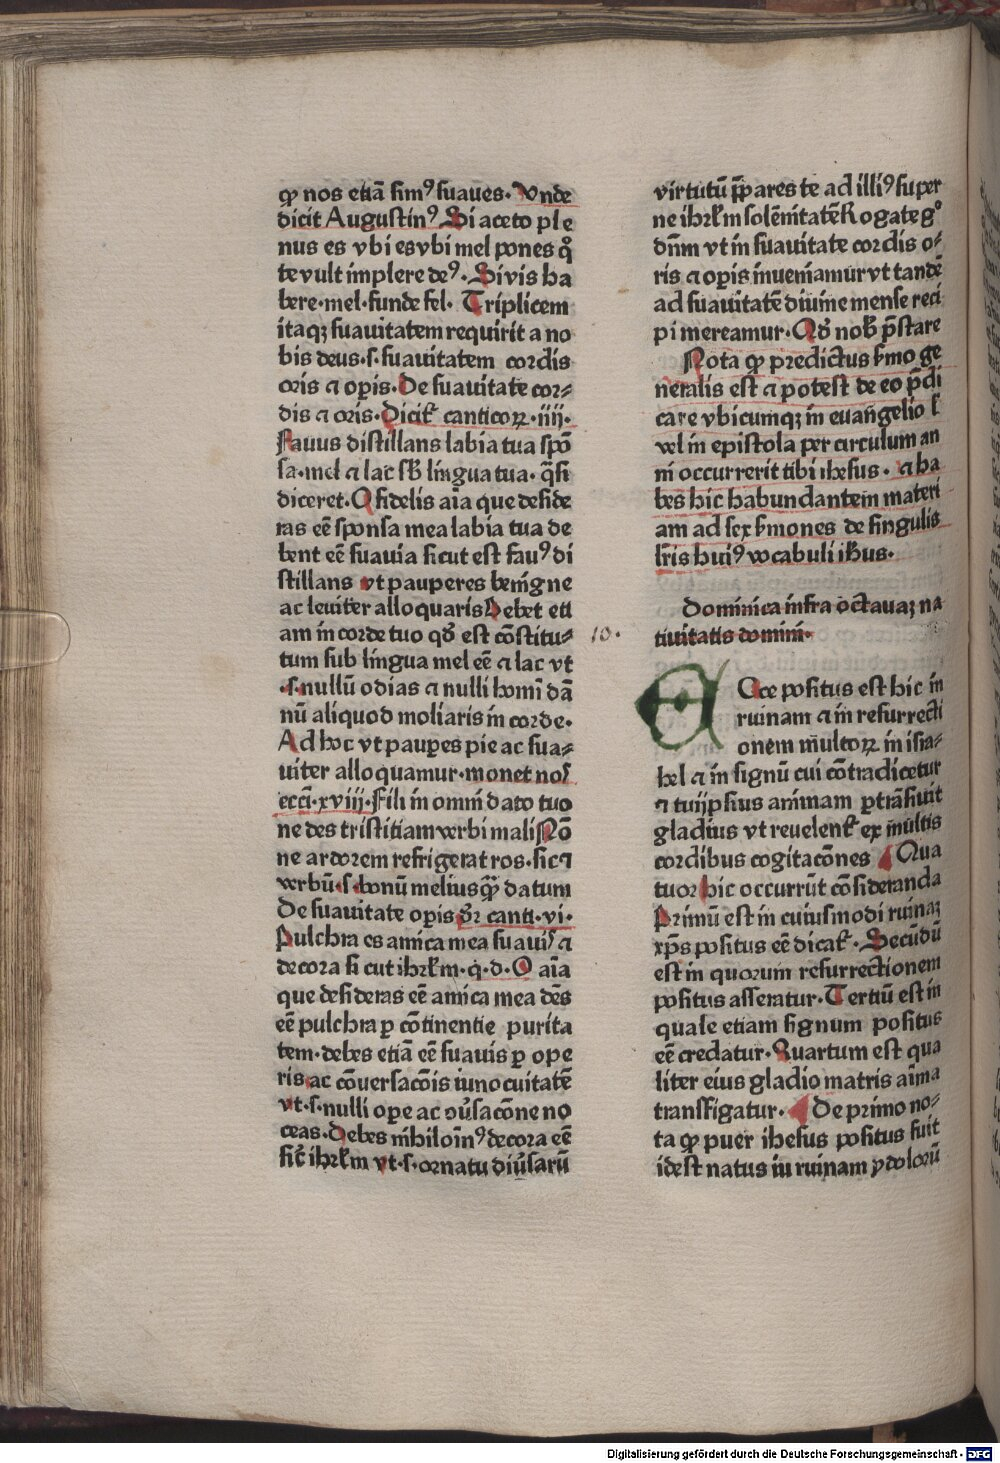 ꝙ nos etiā simꝰ suaues· Vnde
dicit Augustinꝰ Si aceto ple
nus es vbi es vbi mel pones qͦ
te vult implere deꝰ· Si vis ha
bere·mel·funde fel· Triplicem
itaqꝫ suauitatem requirit a no
bis deus·s·suauitatem cordis
oris ⁊ oꝑis·De suauitate cor⸗
dis ⁊ oris·Dicit᷑ canticoꝝ·iiij·
Fauus distillans labia tua spō
sa·mel ⁊ lac sb̄ lingua tua· q̄si
diceret·O fidelis aīa que deside
ras eē sponsa mea labia tua de
bent eē suauia sicut est fauꝰ di
stillans vt pauperes benigne
ac leuiter alloquaris Debet eti
am in corde tuo qd̓ est cōstitu⸗
tum sub lingua mel eē ⁊ lac vt
·s·nullū odias ⁊ nulli homī dā
nū aliquod moliaris in corde·
Ad hoc vt pauꝑes pie ac sua⸗
uiter alloquamur·monet nos
ecci·xviij·Fili in omni dato tuo
ne des tristitiam verbi mali Nō
ne ardorem refrigerat ros·sic ⁊
verbū·s·bonū melius qͣꝫ datum
De suauitate oꝑis dr̄ canti·vi·
Pulchra es amica mea suauis ⁊
decora sicut ihrl̄m·q·d·O aīa
que desideras eē amica mea dēs
eē pulchra ꝑ cōtinentie purita
tem·debes etiā eē suauis ꝑ ope
ris ac cōuersacōis iunocuitatē
vt·s·nulli oꝑe ac ꝯúsacōne no
ceas·Debes nihiloīꝰ decora eē
sic̄ ihrl̄m vt·s·ornatu diúsarū
virtutū p̄pares te ad illiꝰ super
ne ihrl̄m solēnitatē Rogate gͦ
dn̄m vt in suauitate cordis o⸗
ris ⁊ oꝑis inueniamur vt tandē
ad suauitatē diuine mense reci
pi mereamur·Qd̓ nob̄ p̄stare
Nota ꝙ predictus s̄mo ge
neralis est ⁊ potest de eo p̄di
care vbicumqꝫ in euāgelio l̄
vel in epistola per circulum an
ni occurrerit tibi ihesus· ⁊ ha
bes hic habundantem materi
am ad sex s̄mones de singulis
lr̄is huiꝰ vocabuli ih̄us·
Dominica infra octauaꝫ na
tiuitatis domini·
10·
Ecce positus est hic in
ruinam ⁊ in resurrecti
onem multoꝝ in isra⸗
hel ⁊ in signū cui cōtradicetur
⁊ tuijpsius animam ꝑtrāsiuit
gladius vt reuelent᷑ ex multis
cordibus cogitacōnes Qua
tuor hic occurrūt cōsideranda
Primū est in cuiusmodi ruinaꝫ
xp̄s positus eē dicat᷑·Secūdū
est in quorum resurrectionem
positus asseratur·Tertiū est in
quale etiam signum positus
eē credatur·Quartum est qua
liter eius gladio matris aīma
transfigatur· De primo no⸗
ta ꝙ puer ihesus positus fuit
idest natus iu ruinam ydolorū
Digitalisierung gefördert durch die Deutsche Forschungsgemeinschaft - DFG